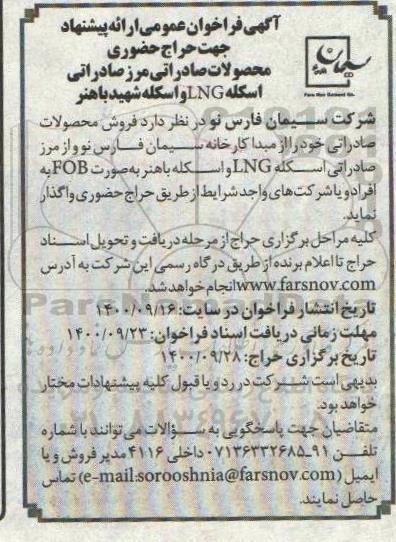 آگهی فراخوان عمومی ارائه پیشنهاد
جهت حراج حضوری
محصولات صادراتی مرز صادراتی
اسکله LNG و اسکله شهید باهنر
Fars Nov Cement Co.
شرکت سیمان فارس نو در نظر دارد فروش محصولات
صادراتی خود را از مبدا کارخانه سیمان فارس نو و از مرز
صادراتی اسکله LNG و اسکله باهنر به صورت FOB به
افراد و یا شرکت‌های واجد شرایط از طریق حراج حضوری واگذار
نماید.
کلیه مراحل برگزاری حراج از مرحله دریافت و تحویل اسناد
حراج تا اعلام برنده از طریق درگاه رسمی این شرکت به آدرس
www.farsnov.com انجام خواهد شد.
تاریخ انتشار فراخوان در سایت: ۱۴۰۰/۰۹/۱۶
مهلت زمانی دریافت اسناد فراخوان: ۱۴۰۰/۰۹/۲۳
تاریخ برگزاری حراج: ۱۴۰۰/۰۹/۲۸
بدیهی است شرکت در رد و یا قبول کلیه پیشنهادات مختار
خواهد بود.
متقاضیان جهت پاسخگویی به سؤالات می توانند با شماره
تلفن ۹۱-۰۷۱۳۶۳۳۲۶۸۵ داخلی ۴۱۱۶ مدیر فروش و یا
ایمیل (e-mail:sorooshnia@farsnov.com) تماس
حاصل نمایند.